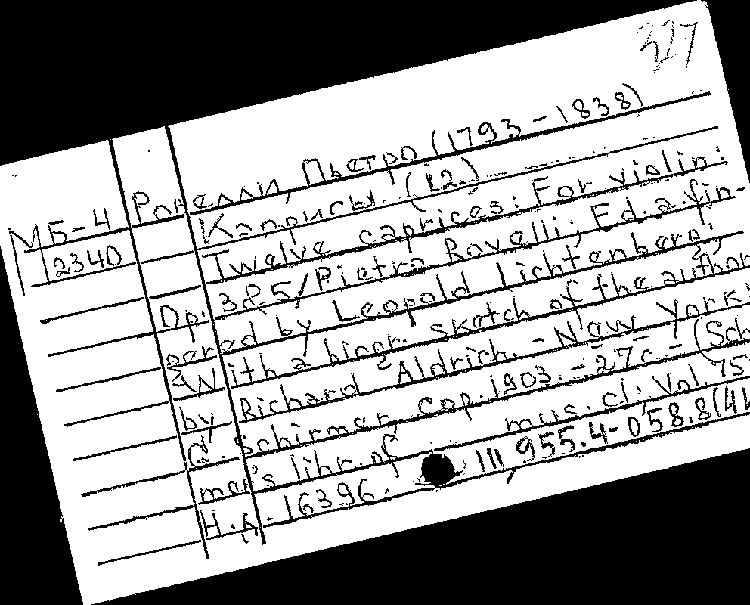 327
Ровелли, Пьетро (1793-1838)
МБ-4 Каприсы (12)
12340 Twelve caprices: For violin:
Op. 3&5/Pietro Rovelli; Ed. a. fin-
gered by Leopold Lichtenberg;
With a biogr. sketch of the author
by Richard Aldrich. - New York:
G. Schirmer, cop. 1903. - 27c. - (Sch
mer's libr. of mus. cl; Vol. 75
Н.А. 16396. III 955.4-058.8(4И